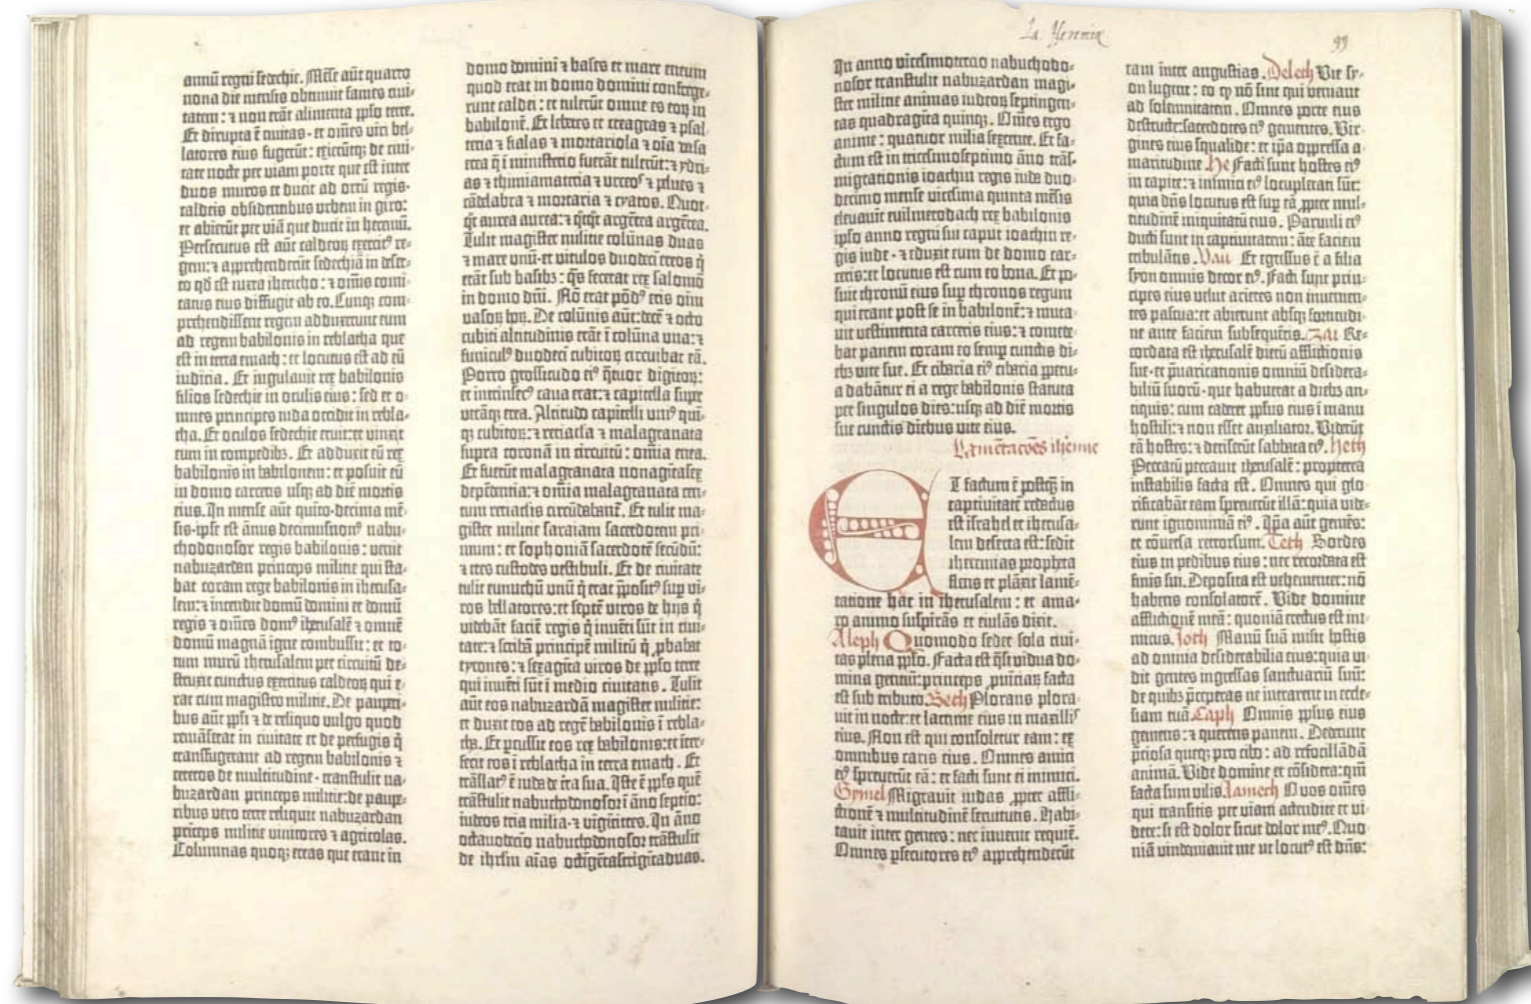 annū regni sedechie. Mēse aūt quarto
nona die mensis obtinuit fames ciui-
tatem: ⁊ non erāt alimenta pplo terre.
Et dirupta ē ciuitas · et om̄es viri bel-
latores eius fugerūt: exierūtq; de ciui-
tate nocte per viam porte que est inter
duos muros et ducit ad ortū regis·
caldeis obsidentibus urbem in giro:
et abierūt per viā que ducit in heremū.
Persecutus est aūt caldeoꝝ exercitꝰ re-
gem: ⁊ apprehenderūt sedechiā in deser-
to qd est iuxta ihericho: ⁊ om̄is comi-
tatus eius diffugit ab eo. Cunq; com-
prehendissent regem adduxerunt eum
ad regem babilonis in reblatha que
est in terra emath: et locutus est ad eū
iudicia. Et iugulauit rex babilonis
filios sedechie in oculis eius: sed et o-
mnes principes iuda occidit in rebla-
tha. Et oculos sedechie eruit: et vinxit
eum in compedibꝫ. Et adduxit eū rex
babilonis in babilonem: et posuit eū
in domo carceris usq; ad diē mortis
eius. In mense aūt quito· decima mē-
sis· ipse est ānus decimusnonꝰ nabu-
chodonosor regis babilonis: venit
nabuzardan princeps milicie qui sta-
bat coram rege babilonis in iherusa-
lem: ⁊ incendit domū domini et domū
regis ⁊ oīnes domꝰ iherusalē ⁊ omnē
domū magnā igne combussit: et to-
tum murū iherusalem per circuitū de-
struxit cunctus exercitus caldeoꝝ qui e-
rat cum magistro milicie. De pauperi-
bus aūt ppli ⁊ de reliquo vulgo quod
remāserat in ciuitate et de perfugis q̄
transfugerant ad regem babilonis ⁊
ceteros de multitudine · transtulit na-
buzardan princeps milicie: de paupe-
ribus vero terre reliquit nabuzardan
princeps milicie vinitores ⁊ agricolas.
Columnas quoq; ereas que erant in
domo domini ⁊ bases et mare eneum
quod erat in domo domini confrege-
runt caldei: et tulerūt omne es eoꝝ in
babilonē. Et lebetes et creagras ⁊ psal-
teria ⁊ fialas ⁊ mortariola ⁊ oīa vasa
erea q̄ ī ministerio fuerāt tulerūt: ⁊ ydri-
as ⁊ thimiamateria ⁊ urceos ⁊ pelues ⁊
cādelabra ⁊ mortaria ⁊ cyatos. Quot-
qt̄ aurea aurea: ⁊ qt̄qt̄ argētea argētea.
Tulit magister milicie colūnas duas
⁊ mare unū· et vitulos duodeci ereos q̄
erāt sub basibꝫ: qs fecerat rex salomō
in domo dn̄i. Nō erat pōdꝰ eris oīm
vasoꝝ hoꝝ. De colūnis aūt: decē ⁊ octo
cubiti altitudinis erāt ī colūna una: ⁊
funiculꝰ duodecī cubitoꝝ circuibat eā.
Porro grossitudo eiꝰ q̄tuor digitoꝝ:
et intrinsecꝰ caua erat: ⁊ capitella supr
utrāq; erea. Altitudo capitelli uniꝰ quī-
q; cubitoꝝ: ⁊ retiacla ⁊ malagranata
supra coronā in circuitū: omīa enea.
Et fuerūt malagranata nonagītasex
depēdētia: ⁊ omīa malagranata cen-
tum retiaclis circūdabant̄. Et tulit ma-
gister milicie saraiam sacerdotem pri-
mum: et sophoniā sacerdotē secūdū:
⁊ tres custodes vestibuli. Et de ciuitate
tulit eunuchū unū q̄ erat ppositꝰ sup vi-
ros bellatores: et septē viros de hijs q̄
videbāt faciē regis q̄ inuēti sūt in ciui-
tate: ⁊ scribā principē militū q̄ pbabat
tyrones: ⁊ sexagīta viros de pplo terre
qui inuēti sūt ī medio ciuitatis. Tulit
aūt eos nabuzardā magister milicie:
et duxit eos ad regē babilonis ī rebla-
tha. Et pcussit eos rex babilonis: et inter-
fecit eos ī reblatha in terra emath. Et
trāslatꝰ ē iuda de tr̄a sua. Iste ē pplus quē
trāstulit nabuchodonosor: ī āno septīo:
iudeos tria milia· ⁊ vigītitres. In āno
octauodecīo nabuchodonosor trāstulit
de ihrlm aīas octīgētastrigītaduas.
La. Yeremie
99
In anno vicesimotercio nabuchodo-
nosor transtulit nabuzardan magi-
ster milicie animas iudeoꝝ septingen-
tas quadragīta quinq;. Om̄es ergo
anime: quatuor milia sexcente. Et fa-
ctum est in tricesimoseptimo āno trās-
migrationis ioachin regis iude duo-
decimo mense vicesima quinta mēsis
eleuauit euilmerodach rex babilonis
ipso anno regni sui caput ioachin re-
gis iude · ⁊ eduxit eum de domo car-
ceris: et locutus est cum eo bona. Et po-
suit thronū eius sup thronos regum
qui erant post se in babilonē: ⁊ muta-
uit vestimenta carceris eius: ⁊ comede-
bat panem coram eo semp cunctis di-
ebꝫ vite sue. Et cibaria eiꝰ cibaria ppetu-
a dabātur ei a rege babilonis statuta
per singulos dies: usq; ad diē mortis
sue cunctis diebus vite eius.
Lamētacōes iheremie
Et factum ē postq̄ in
captiuitatē redactus
est israhel et iherusa-
lem deserta est: sedit
iheremias propheta
flens et plāxit lamē-
tatione hac in iherusalem: et ama-
ro animo suspirās et eiulās dixit.
Aleph Quomodo sedet sola ciui-
tas plena pplo. Facta est q̄si vidua do-
mina gentiū: princeps puīciaꝝ facta
est sub tributo. Beth Plorans plora-
uit in nocte: et lacrime eius in maxillꝭ
eius. Non est qui consoletur eam: ex
omnibus caris eius. Omnes amici
eiꝰ spreuerūt eā: et facti sunt ei inimici.
Gymel Migrauit iudas ppter affli-
ctionē ⁊ multitudinē seruitutis. Habi-
tauit inter gentes: nec inuenit requiē.
Omnes psecutores eiꝰ apprehenderūt
eam inter angustias. Deleth Vie sy-
on lugent: eo q̄ nō sint qui veniant
ad solennitatem. Omnes porte eius
destructe: sacerdotes eiꝰ gementes. Vir-
gines eius squalide: et ip̄a oppressa a-
maritudine He Facti sunt hostes eiꝰ
in capite: ⁊ inimici eiꝰ locupletati sūt:
quia dn̄s locutus est sup eā ppter mul-
titudinē iniquitatū eius. Paruuli eiꝰ
ducti sunt in captiuitatem: āte faciem
tribulātis. Vau Et egressus ē a filia
syon omnis decor eiꝰ. Facti sunt prin-
cipes eius velut arietes non inuenien-
tes pascua: et abierunt absq; fortitudi-
ne ante faciem subsequētis. Zai Re-
cordata est iherusalē dierū afflictionis
sue· et p̄uaricationis omniū desidera-
biliū suorū· que habuerat a diebꝫ an-
tiquis: cum caderet pplus eius ī manu
hostili: ⁊ non esset auxiliator. Viderūt
eā hostes: ⁊ deriserūt sabbata eiꝰ. Heth
Peccatū peccauit iherusalē: propterea
instabilis facta est. Omnes qui glo-
rificabāt eam spreuerūt illā: quia vide-
runt ignominiā eiꝰ. Ip̄a aūt gemēs:
et cōuersa retrorsum. Teth Sordes
eius in pedibus eius: nec recordata est
finis sui. Deposita est vehementer: nō
habens consolatorē. Vide domine
afflictionē meā: quoniā erectus est ini-
micus. Joth Manū suā misit hostis
ad omnia desiderabilia eius: quia vi-
dit gentes ingressas sanctuariū suū:
de quibꝫ p̄ceperas ne intrarent in eccle-
siam tuā. Caph Omnis pplus eius
gemens: ⁊ querens panem. Dederunt
p̄ciosa queq; pro cibo: ad refocillādā
animā. Vide domine et cōsidera: qm̄
facta sum vilis. Lamech O vos om̄es
qui transitis per viam attendite et vi-
dete: si est dolor sicut dolor meꝰ. Quo-
niā vindemiauit me ut locutꝰ est dn̄s: